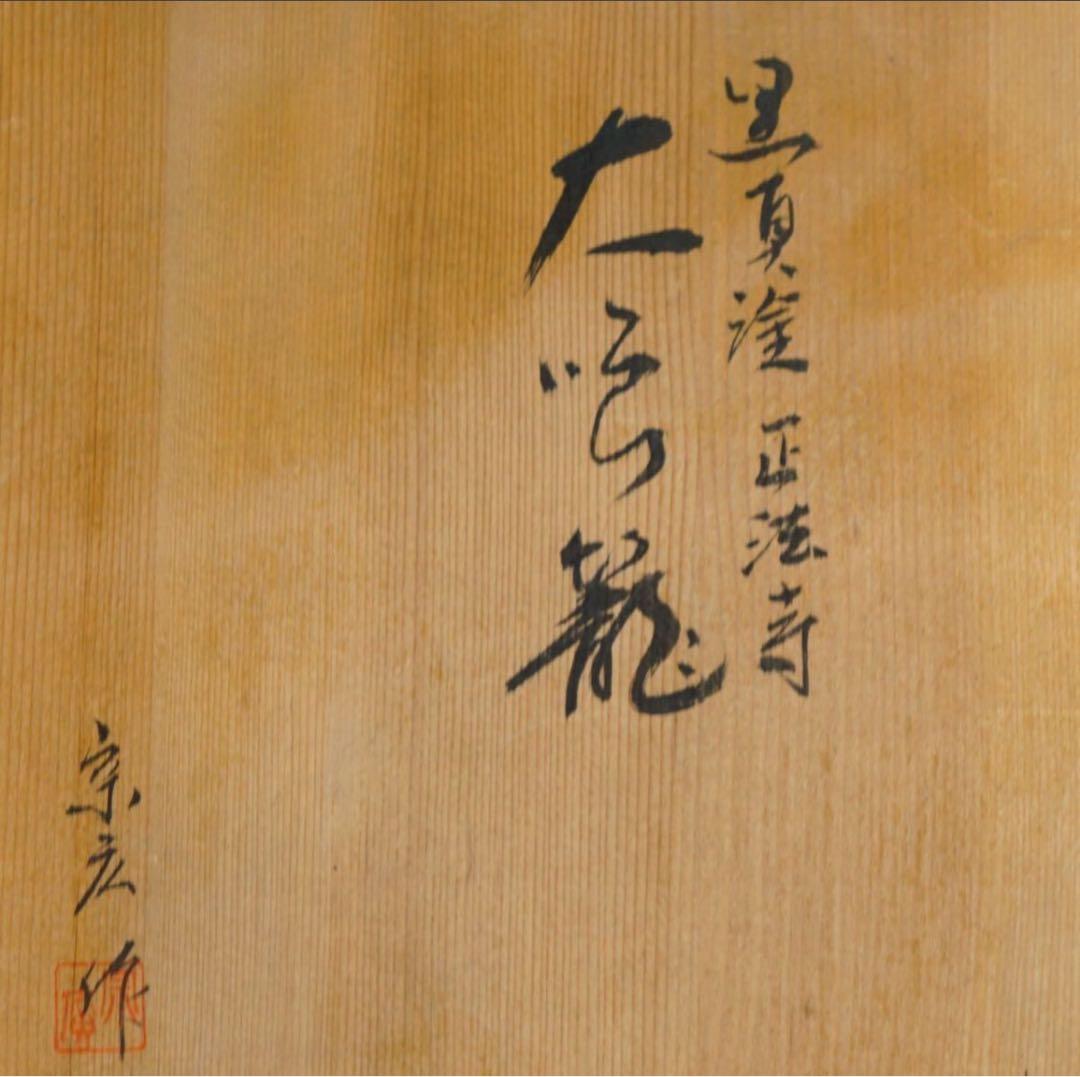 黒真塗 正法寺
大喰籠
宗広 作